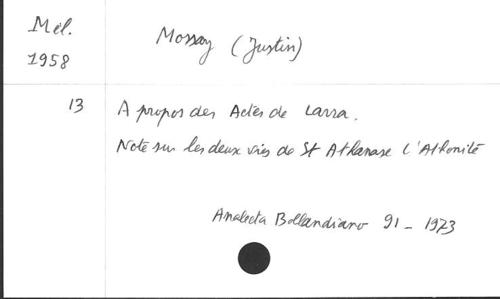 Mél.
1958
Mossay (Justin)
13
A propos des Actes de Lavra.
Note sur les deux vies de St Athanase l'Athonite
Analecta Bollandiano 91 - 1973